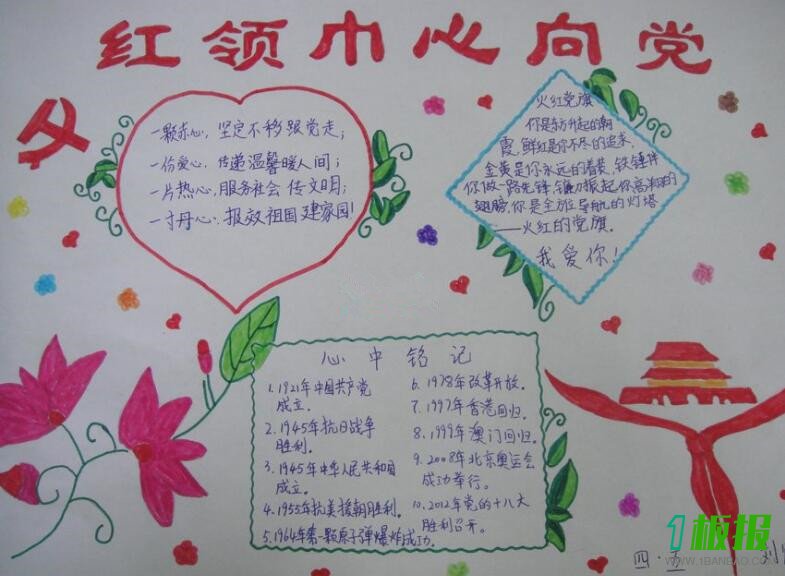 红领巾心向党
一颗赤心,坚定不移跟党走;
一份爱心,传递温馨暖人间;
一片热心,服务社会传文明;
一寸丹心,报效祖国建家园!
火红党旗
你是东方升起的朝
霞,鲜红是你不尽的追求,
金黄是你永远的着装,铁锤伴
你做一路先锋,镰刀振起你高翔的
翅膀,你是全方位导航的灯塔
——火红的党旗,
我爱你!
心中铭记
1.1921年中国共产党
成立.
2.1945年抗日战争
胜利.
3.1945年中华人民共和国
成立.
4.1955年抗美援朝胜利.
5.1964年第一颗原子弹爆炸成功.
6.1978年改革开放.
7.1997年香港回归.
8.1999年澳门回归.
9.2008年北京奥运会
成功举行.
10.2012年党的十八大
胜利召开.
四·五
1板报
WWW.1BANBAO.COM